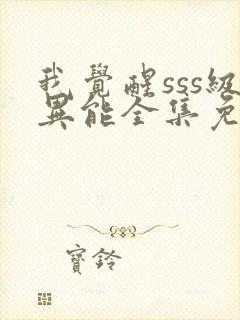 我覺醒sss級
異能全集免
寶鈴